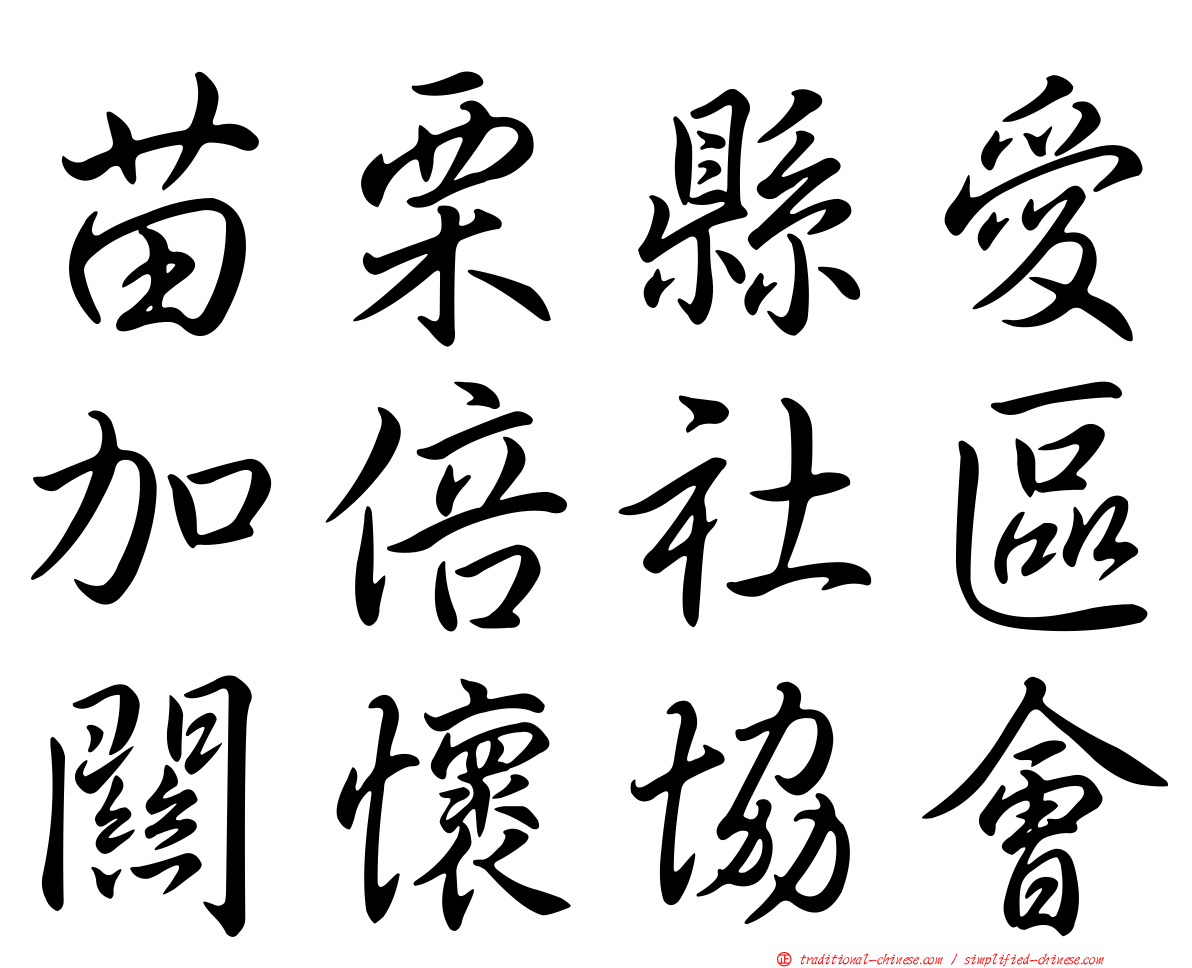 苗栗縣愛
加倍社區
關懷協會
正 traditional-chinese.com / simplified-chinese.com